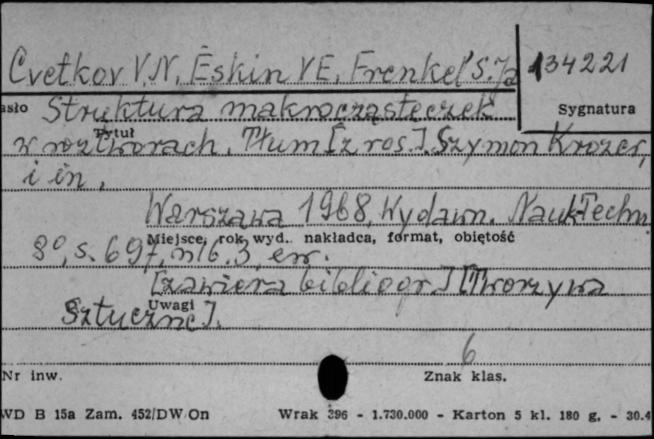 Cvetkov V.N. Ėskin V E. Frenkel' S. Ja 134221
asło Struktura makrocząsteczek Sygnatura
Tytuł
w roztworach. Tłum [z ros.]. Szymon Krozer,
i in.
Warszawa 1968, Wydawn. Nauk-Techn
Miejsce, rok, wyd.. nakładca, format, objętość
8°, s. 697, nlb. 3, err.
[zawiera bibliogr.] [Tworzywa
Uwagi
Sztuczne].
6
Nr inw. Znak klas.
WD B 15a Zam. 452/DW/On Wrak 396 - 1.730.000 - Karton 5 kl. 180 g. - 30.4